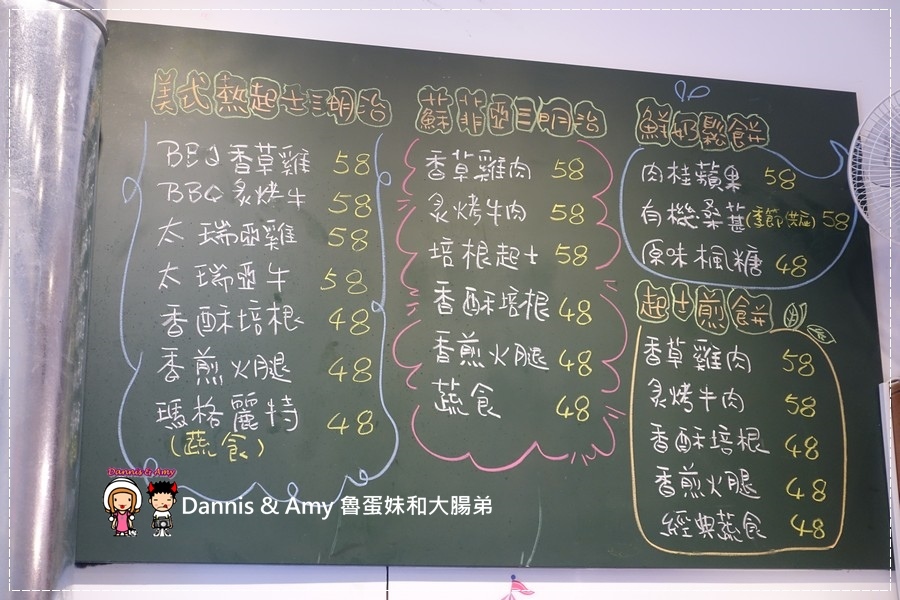 美式熱起士三明治
BBQ香草雞 58
BBQ炙烤牛 58
太瑞啞雞 58
太瑞啞牛 58
香酥培根 48
香煎火腿 48
瑪格麗特 48
(蔬食)
蘇菲亞三明治
香草雞肉 58
炙烤牛肉 58
培根起士 58
香酥培根 48
香煎火腿 48
蔬食 48
鮮奶鬆餅
肉桂蘋果 58
有機桑葚(季節供应) 58
原味楓糖 48
起士煎餅
香草雞肉 58
炙烤牛肉 58
香酥培根 48
香煎火腿 48
經典蔬食 48
Dannis & Amy
Dannis & Amy 魯蛋妹和大腸弟